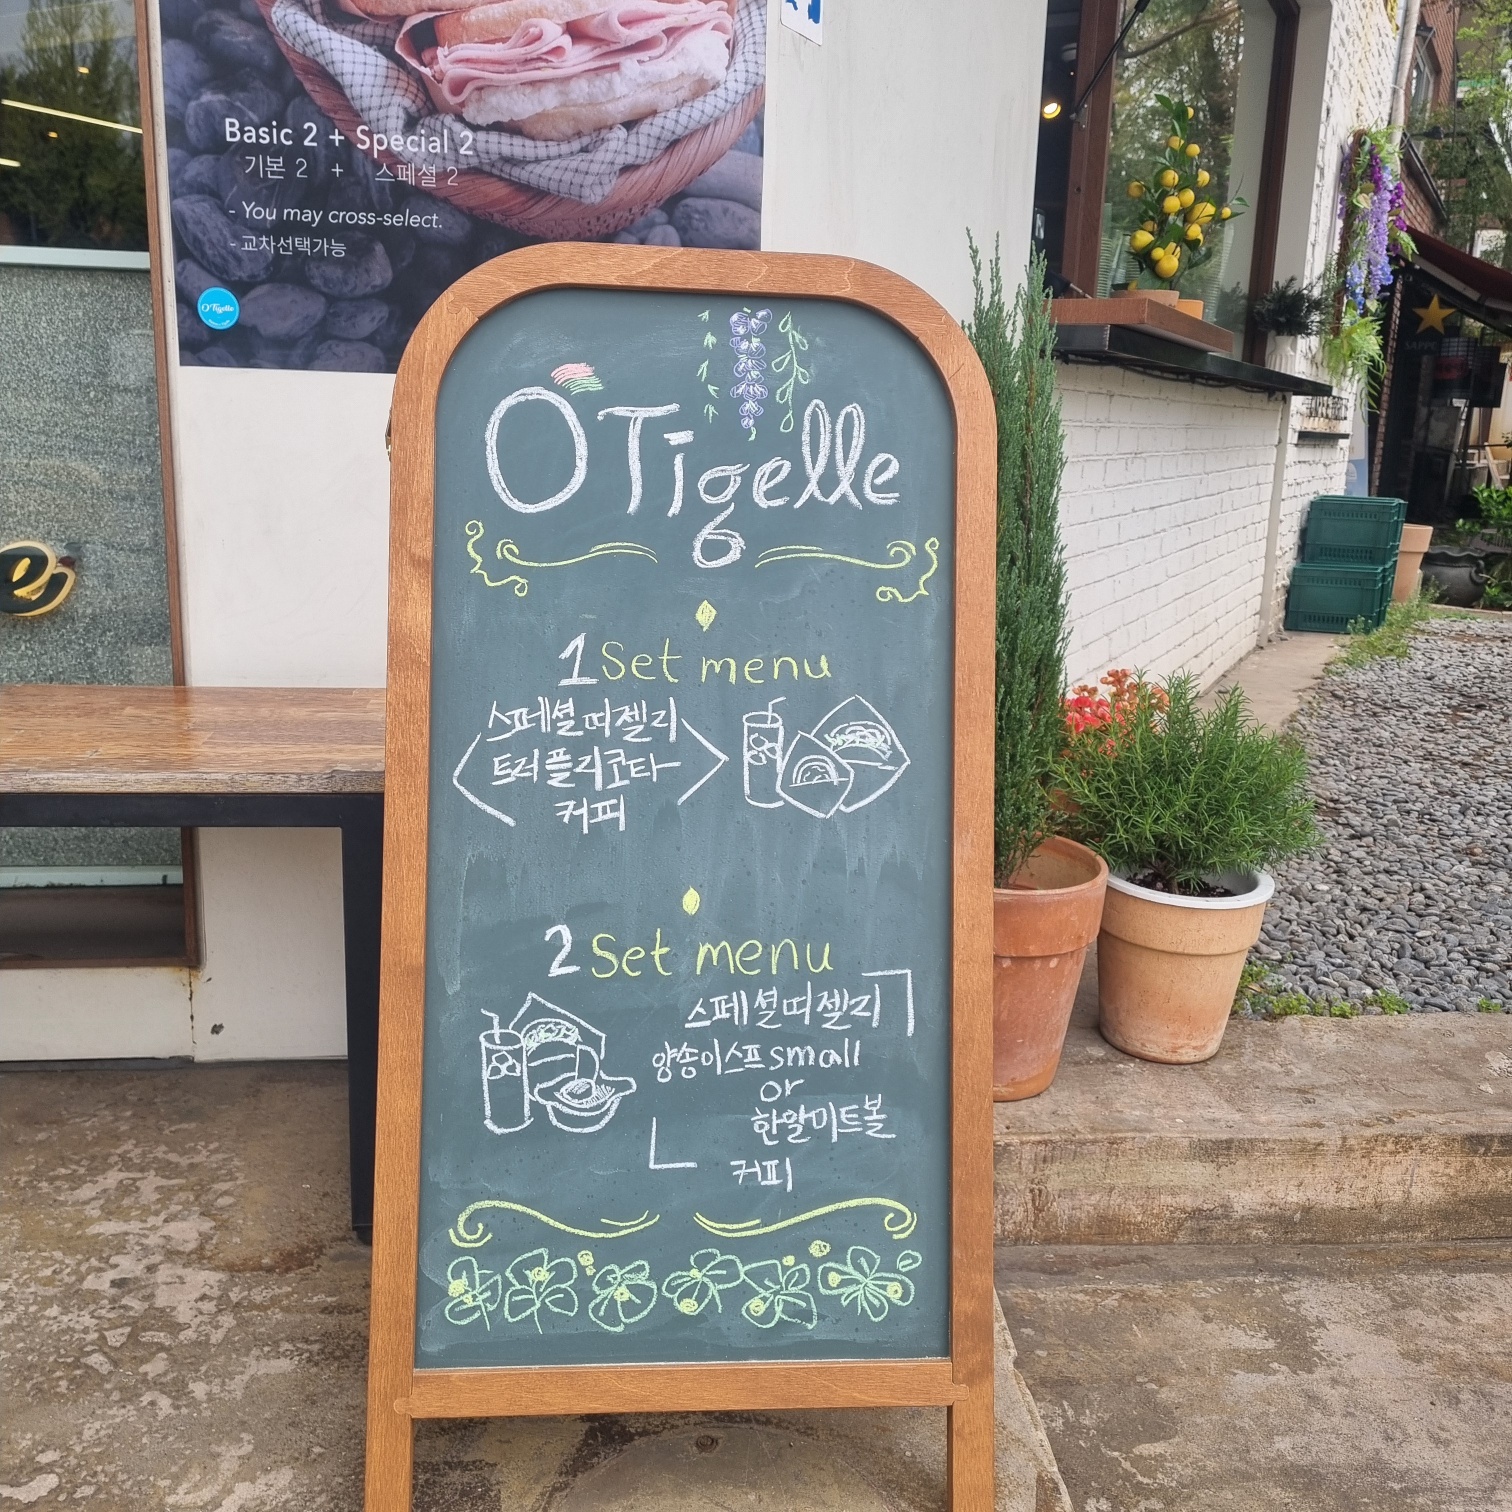 Basic 2 + Special 2
기본 2 + 스페셜 2
- You may cross-select.
- 교차선택가능
O'Tigelle
O'Tigelle
1 Set menu
스페셜띠젤리
트러플리코타
커피
2 Set menu
스페셜띠젤리
양송이스프 small
or
한알미트볼
커피